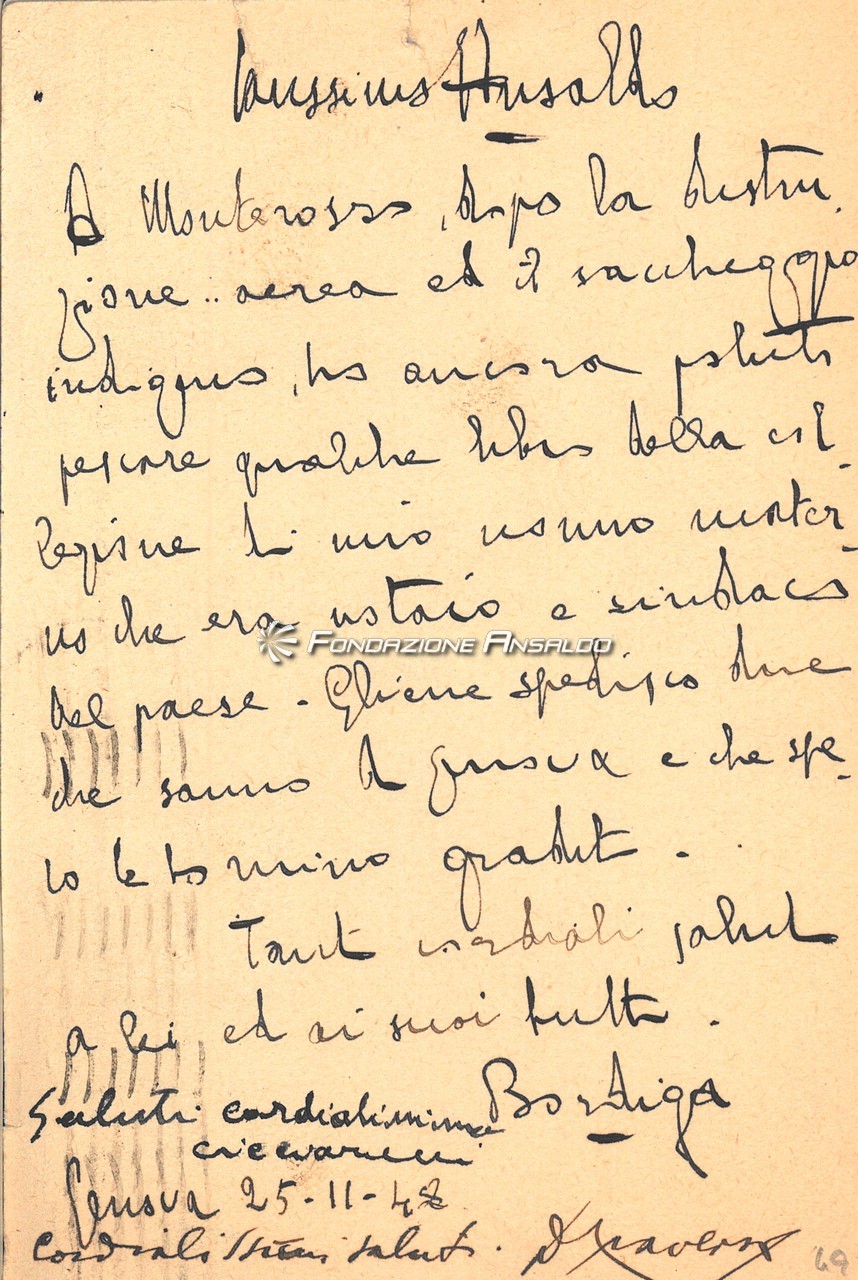 Carissimo Ansaldo
A Monterosso, dopo la distru-
zione aerea ed il saccheggio
indigeno, ho ancora potuto
pescare qualche libro della col-
lezione di mio nonno mater-
no che era notaio e sindaco
FONDAZIONE ANSALDO
del paese - Gliene spedisco due
che sanno di Genova e che spe-
ro le saranno graditi.
Tanti cordiali saluti
a lei ed ai suoi tutti.
Bordiga
Saluti cordialissimi
Genova 25-11-48
cordialissimi saluti.
49